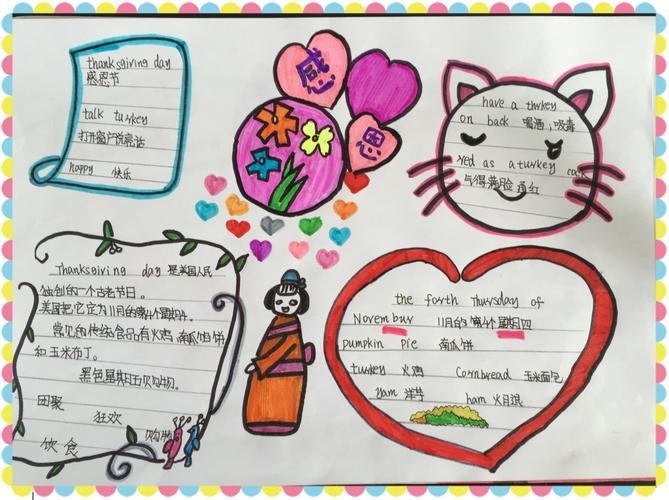 thanksgiving day
感恩节
talk turkey
打开窗户说亮话
happy 快乐
感
恩
have a thrkey
on back 喝酒,吸毒
red as a turkey cock
气得满脸通红
Thanksgiving day 是美国人民
独创的一个古老节日。
美国把它定为11月的第4个星期4.
常见的传统食品有火鸡 南瓜馅饼
和玉米布丁。
黑色星期五购物。
团聚
狂欢
购物
饮食
the forth Thursday of
November 11月的第4个星期四
pumpkin pie 南瓜饼
turkey 火鸡 Cornbread 玉米面包
Yam 洋芋 ham 火腿